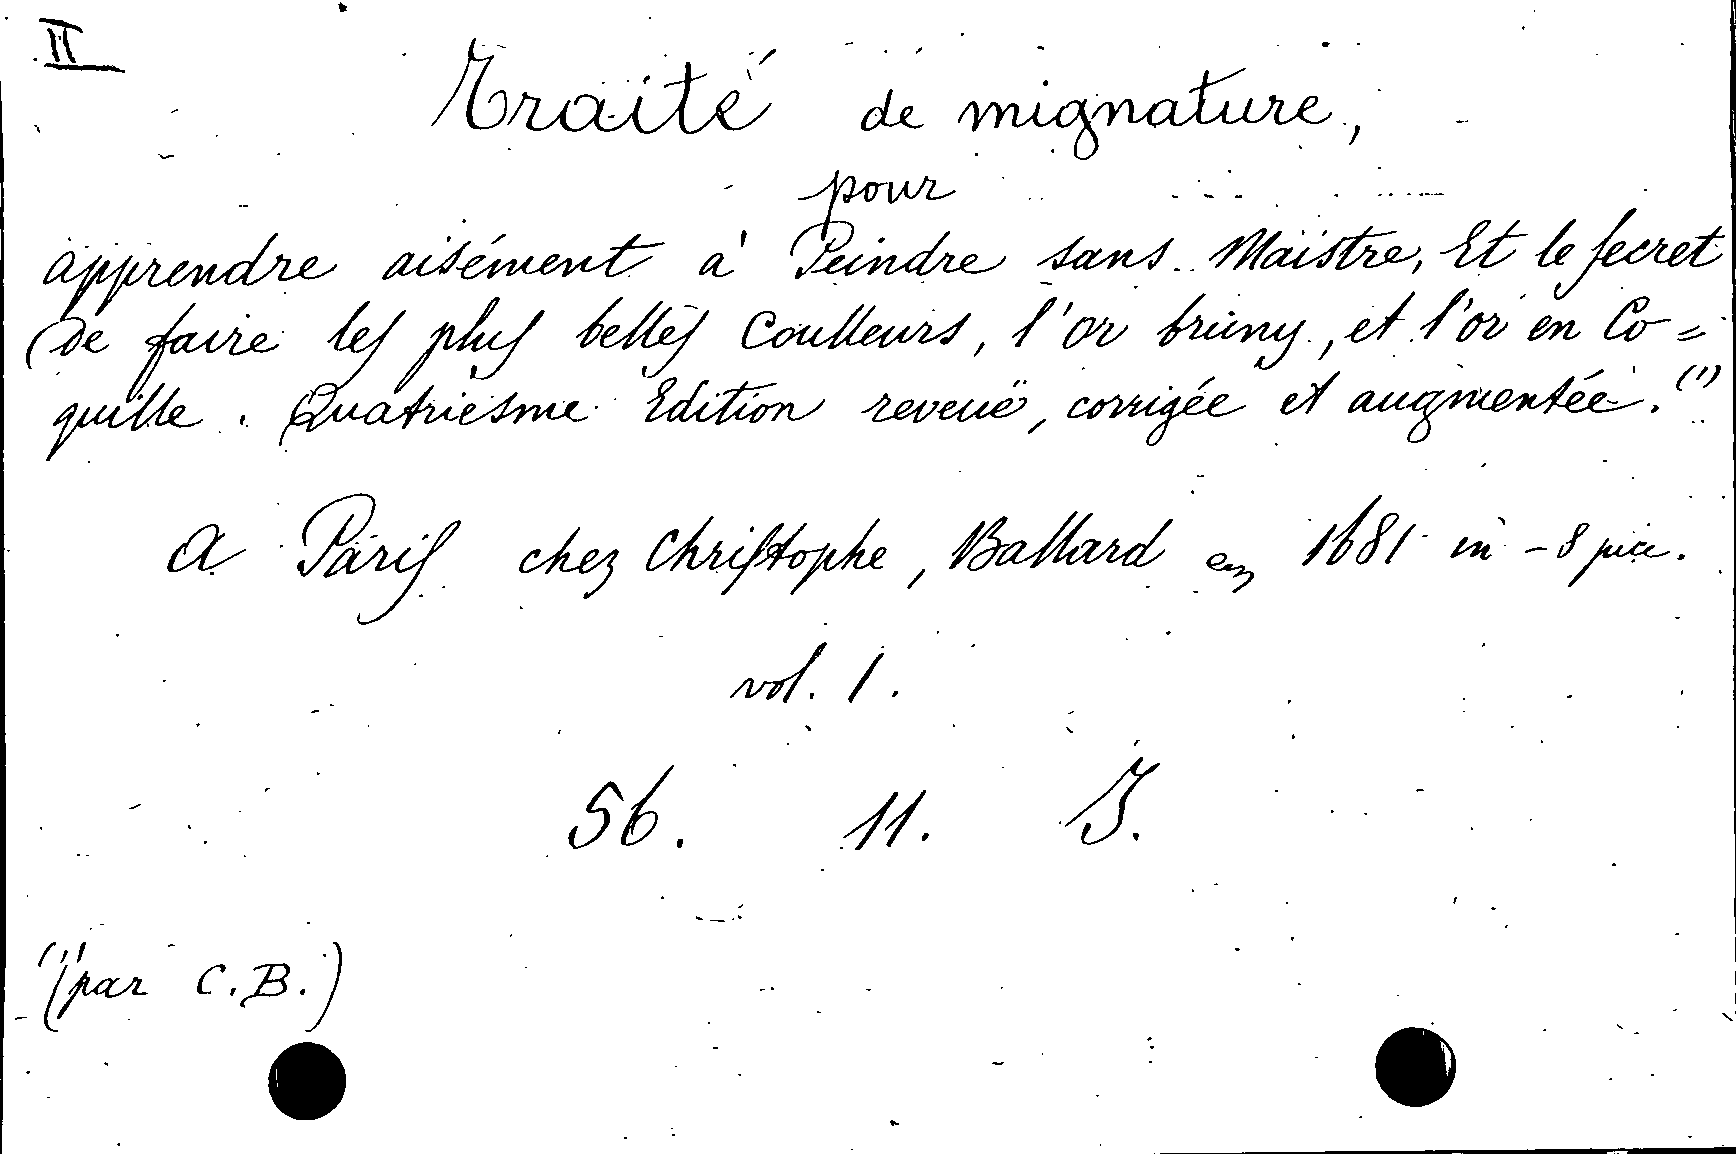 II
Traité de mignature,
pour
apprendre aisément à Peindre sans Maistre, Et le ſecret
de faire leſ pluſ belleſ Coulleurs, l'or bruny, et l'or en Co=
quille. Quatriesme Edition reveuë, corrigée et augmentée. (1)
A Pariſ chez Chriſtophe, Ballard en 1681 in-8 picc.
vol. 1.
56. 11. I.
(1) (par C.B.)